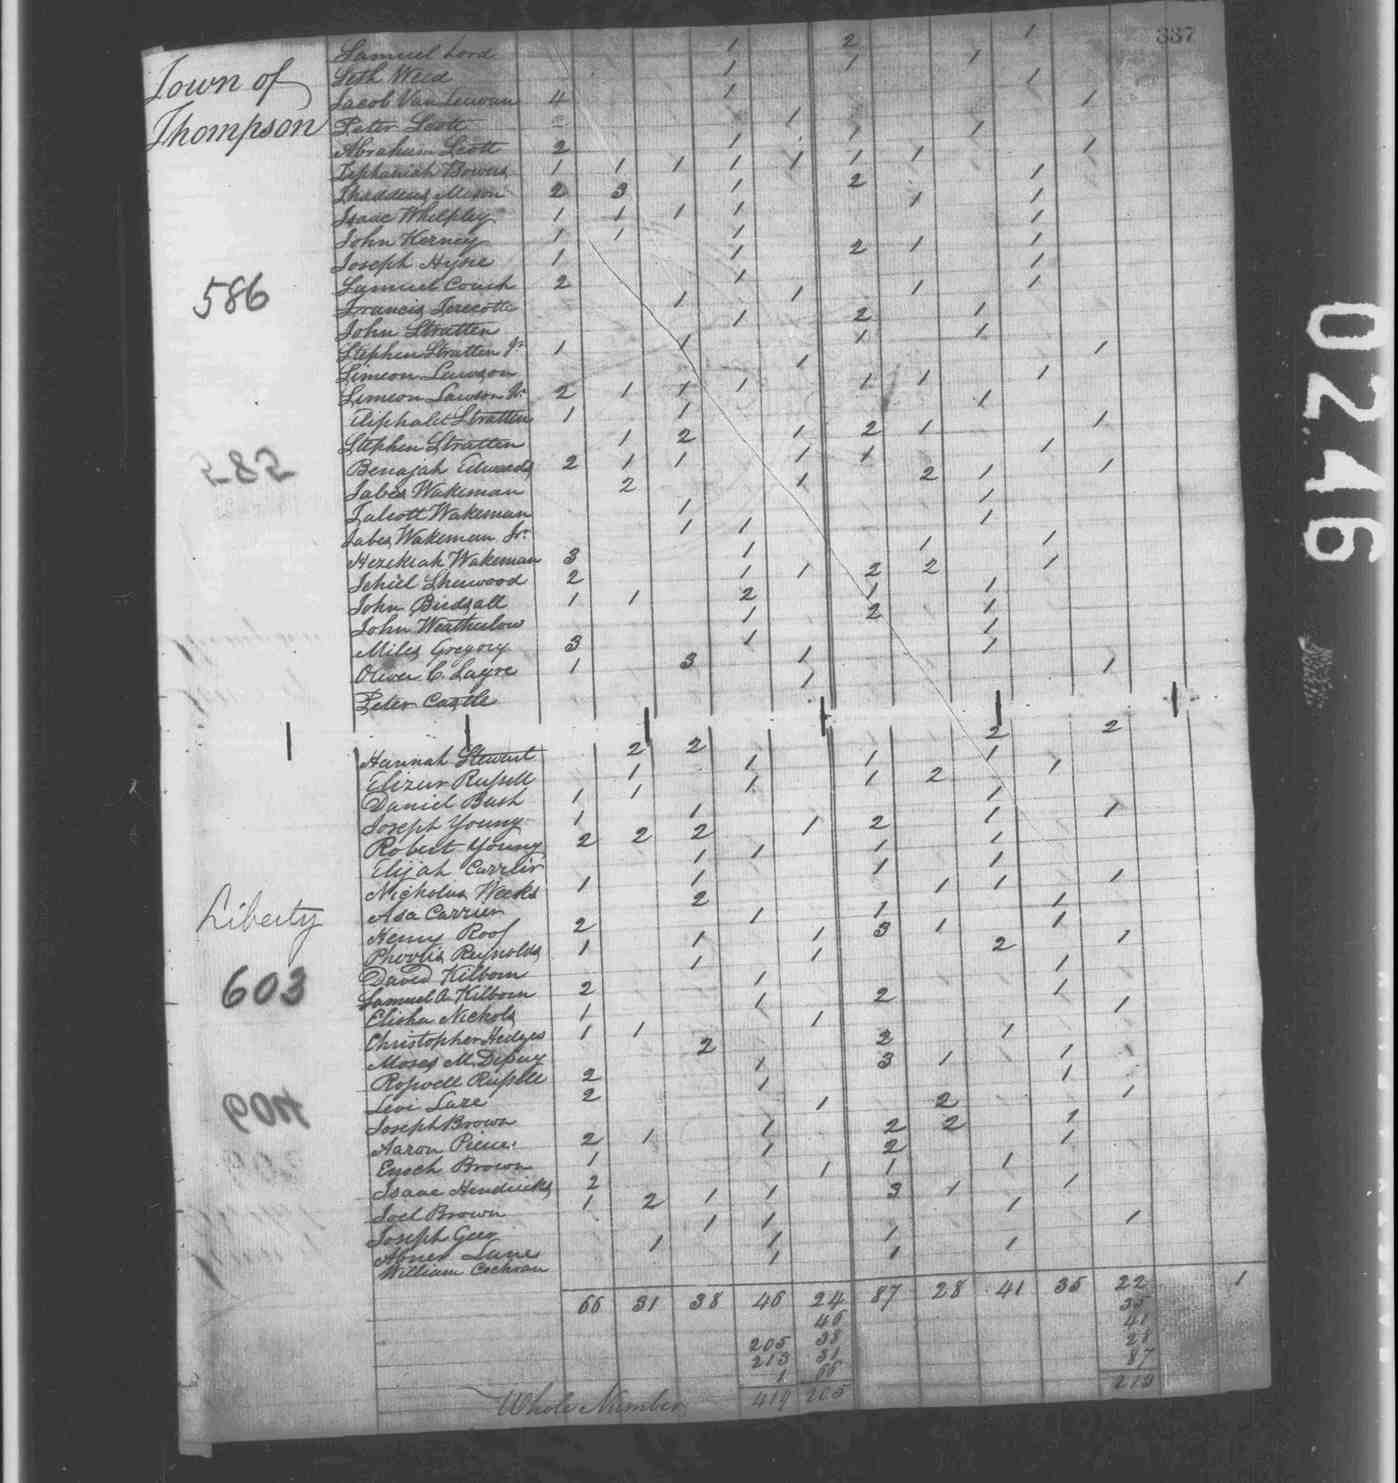 337
Town of
Thompson
586
282
Liberty
603
0246
Samuel Lord 1 2 1
Seth Weed 1 1 1
Jacob Van Leuvan 4 1 1
Peter Scott 1 1
Abraham Scott 2 1 1 1
Zephaniah Bowers 1 1 1 1 1 1 1 1
Thaddeus Mason 2 3 1 2 1
Isaac Whelpley 1 1 1 1 1 1
John Kerney 1 1 1 1
Joseph Hyne 1 1 2 1 1
Samuel Couch 2 1 1
Francis 1 1 1 1
John Stratten 1 2 1
Stephen Stratten Jr 1 1 1 1
Simeon Lawson 1 1
Simeon Lawson Jr 2 1 1 1 1 1 1
Eliphalet Stratten 1 1 1
Stephen Stratten 1 2 1 2 1 1
Benajah Edwards 2 1 1 1 1 1
Jabes Wakeman 2 1 2 1 1
Talcott Wakeman 1 1
Jabes Wakeman Jr. 1 1 1
Hezekiah Wakeman 3 1 1 1
Jehiel Sherwood 2 1 1 2 2 1
John Birdsall 1 1 2 1 1
John Weatherlow 1 2 1
Miles Gregory 3 1 1
Oliver C. Sayre 1 3 1 1
Peter Castle 1 1
Hannah Stewart 2 2 2 2
Elizur Russell 1 1 1
Daniel Bush 1 1 1 1 2 1
Joseph Young 1 1 1
Robert Young 2 2 2 1 2 1 1
Elijah Carrier 1 1 1 1
Nicholas Weeks 1 1 1 1
Asa Carrier 2 1 1 1
Henry Roof 2 1 1 1
Reynolds 1 1 1 3 1 1
David Kilborn 1 1 2 1
Samuel A Kilborn 2 1 1
Elisha Nichols 1 1 2 1
Christopher Hedges 1 1 1 1
Moses M. Depuy 2 2 1
Roswell Russell 2 1 3 1 1
Levi Lare 2 1 1
Joseph Brown 1 2 1
Aaron Pierce 2 1 1 2 2 1
Enoch Brown 1 1 2 1
Isaac Hendricks 2 1 1 1
Joel Brown 1 2 1 1 3 1 1
Joseph Geer 1 1 1 1
Abner Lane 1 1 1
William Cochran 1 1 1
66 31 38 46 24 87 28 41 35 22 1
46 35
205 38 41
213 31 28
1 66 87
Whole Number 419 205 213